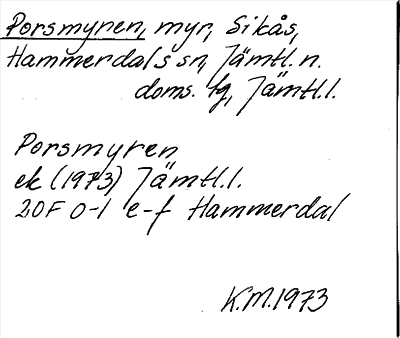 Porsmyren, myr, Sikås,
Hammerdals sn, Jämtl. n.
doms. tg, Jämtl. l.
Porsmyren
ek (1973) Jämtl. l.
20F 0-1 e-f Hammerdal
K.M. 1973